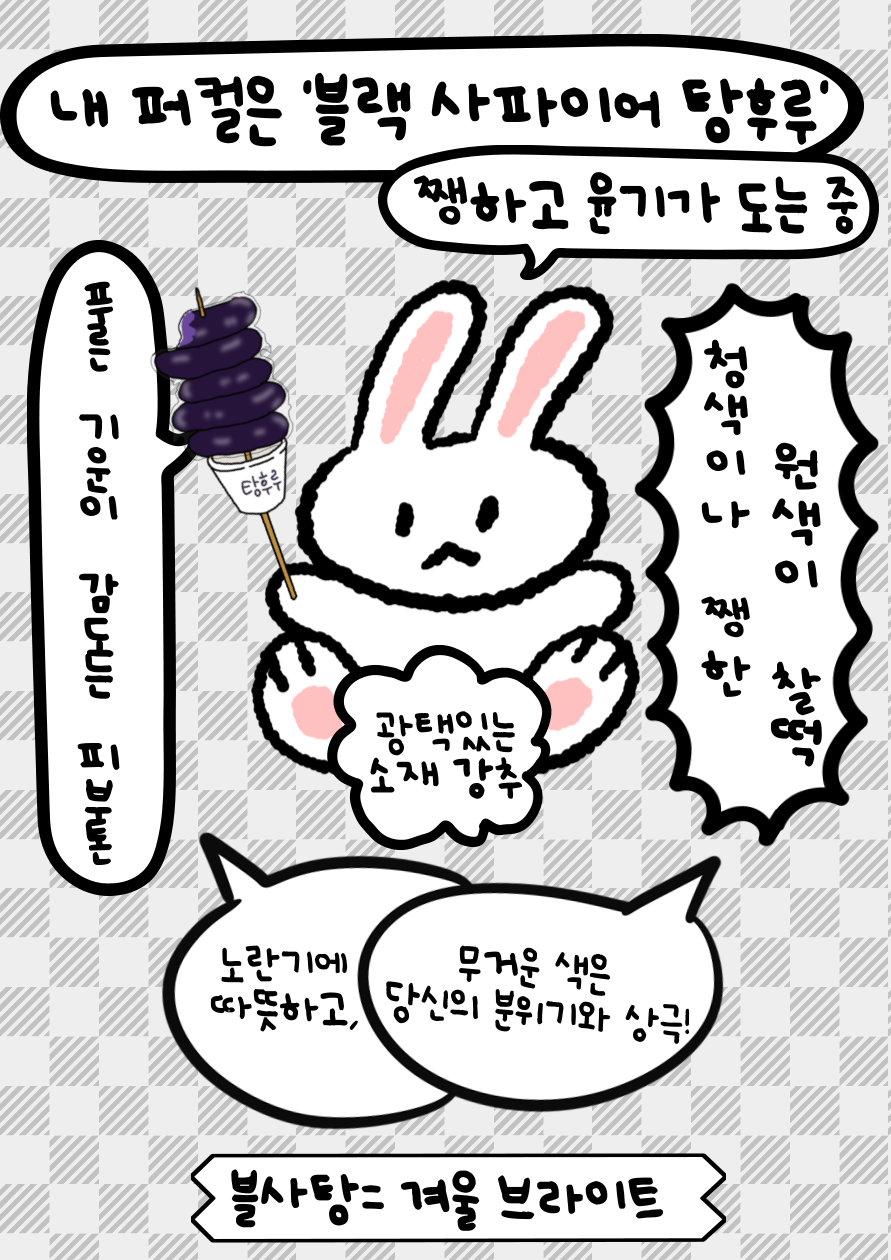 내 퍼컬은 '블랙 사파이어 탕후루'
쨍하고 윤기가 도는 중
푸른 기운이 감도는 피부톤
탕후루
청색이나 쨍한
원색이 찰떡
광택있는
소재 강추
노란기에
따뜻하고,
무거운 색은
당신의 분위기와 상극!
블사탕= 겨울 브라이트